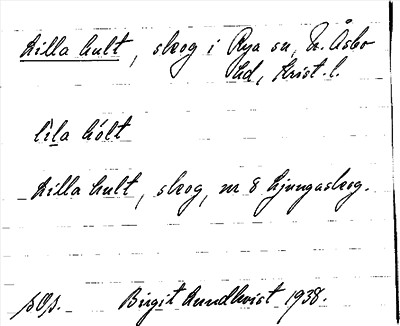 Lilla hult, skog i Rya sn, N. Åsbo
hd, Krist. l.
lìla hólt
Lilla hult, skog, nr 8 Ljungaskog.
Birgit Lundkvist 1938.